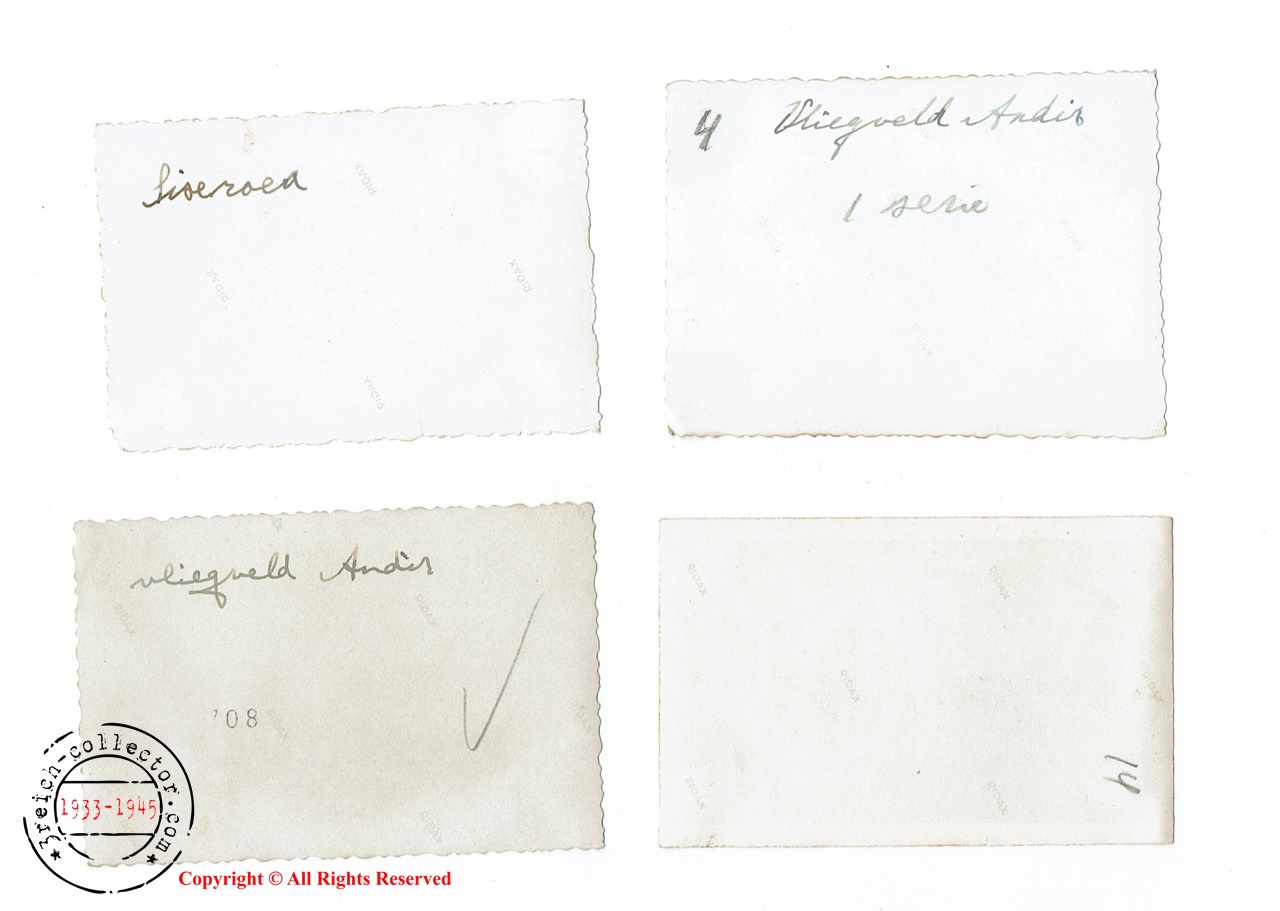 RIDAX
RIDAX
RIDAX
RIDAX
4 Vliegveld Andir
1 serie
RIDAX
RIDAX
RIDAX
vliegveld Andir
RIDAX
RIDAX
'08
RIDAX
RIDAX
RIDAX
RIDAX
RIDAX
RIDAX
RIDAX
4
RIDAX
RIDAX
3reich-collector.com
1933-1945
Copyright © All Rights Reserved